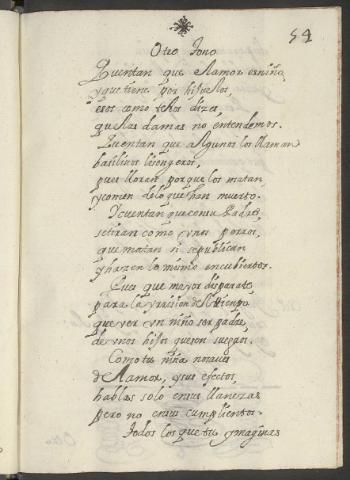 54
Otro Tono
Cuentan que el Amor es niño
y que tiene por hijuelos,
esos como se los dizes,
que las damas no entendemos.
Cuentan que algunos los llaman
basiliscos lisongeros,
pues lloran porque los matan
y comen de lo que han muerto.
Y cuentan que con su Padre
se tiran como unos perros,
que matan si se publican
y hazen lo mismo encubiertos.
Pues que mayor disparate
para la del tiempo
que ver un niño ser padre
de unos hijos que son suegros.
Como tu niña no saues
de el Amor, y sus efectos,
hablas solo en sus llanezas
pero no en sus cumplimientos.
Todos los que tu ymaginas